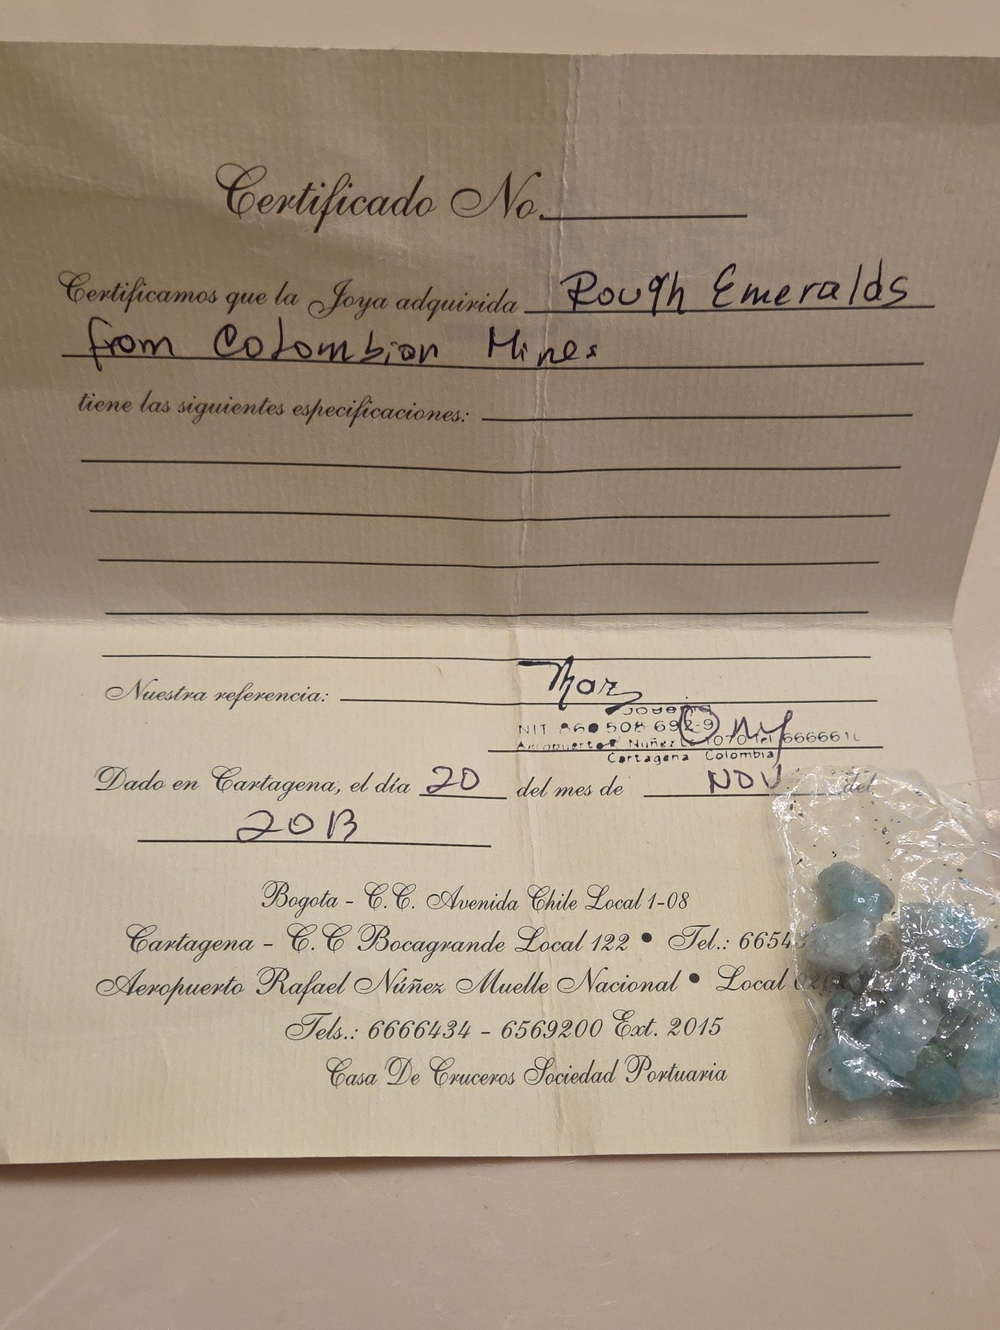 Certificado No.
Certificamos que la Joya adquirida Rough Emeralds
from Colombian Mines
tiene las siguientes especificaciones:
Nuestra referencia:
Joyeria
NIT 860 508 692-9
Aeropuerto Nuñez L 1070 Tel 666661
Cartagena Colombia
Dado en Cartagena, el día 20 del mes de NOV del
2013
Bogota - C.C. Avenida Chile Local 1-08
Cartagena - C.C Bocagrande Local 122 • Tel.: 6654
Aeropuerto Rafael Núñez Muelle Nacional • Local
Tels.: 6666434 - 6569200 Ext. 2015
Casa De Cruceros Sociedad Portuaria